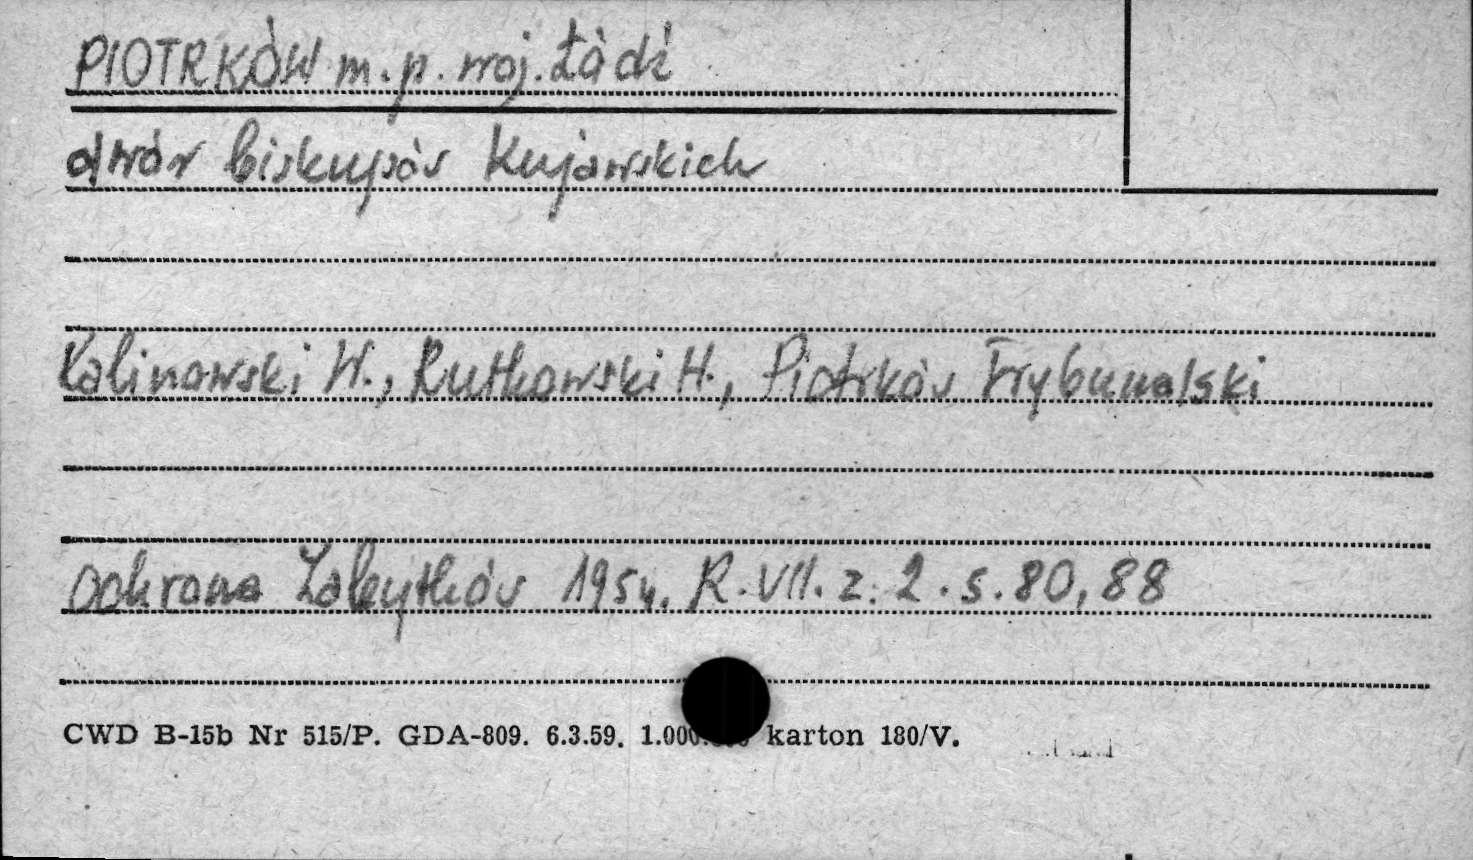 PIOTRKÓW m.p. woj. Łódź
dwór biskupów Kujawskich
Kalinowski W., Rutkowski H., Piotrków Trybunalski
Ochrona Zabytków 1954. R. VII. z. 2. s. 80, 88
CWD B-15b Nr 515/P. GDA-809. 6.3.59. karton 180/V.